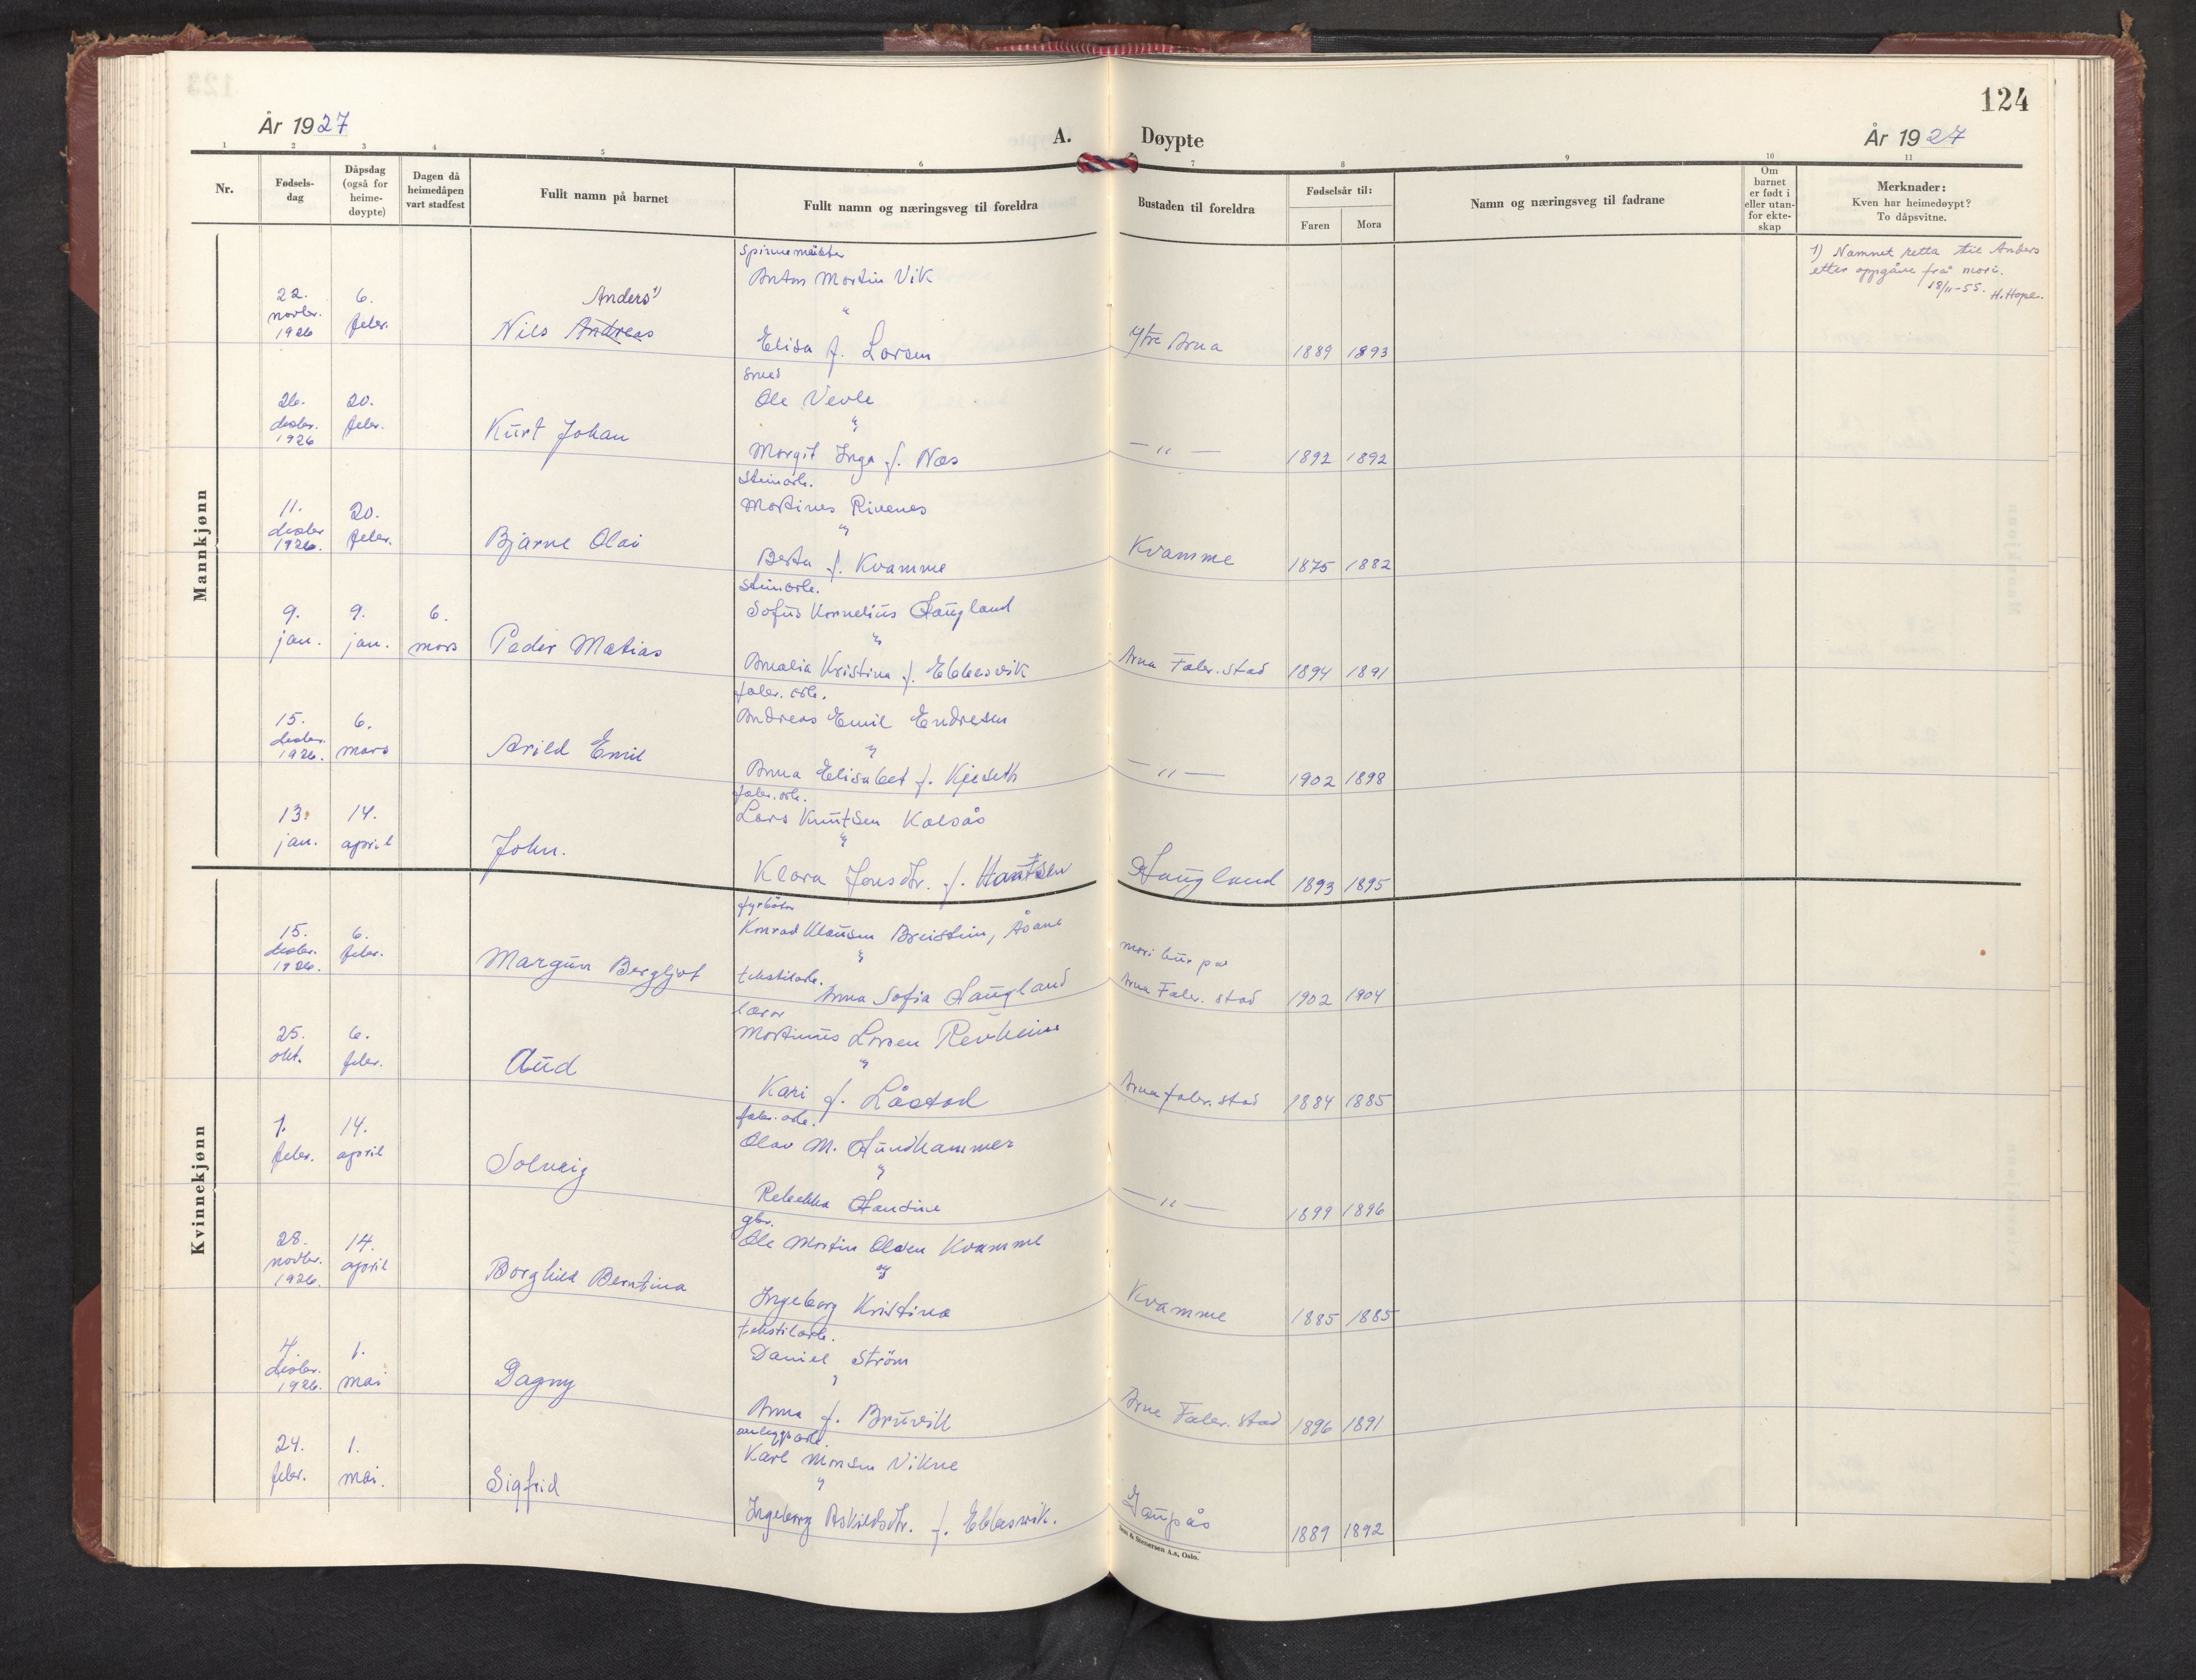 124
År 1927
A. Døypte
År 1927
1 2 3 4 5 6 7 8 9 10 11
Nr.
Fødsels-
dag
Dåpsdag
(også for
heime-
døypte)
Dagen då
heimedåpen
vart stadfest
Fullt namn på barnet
Fullt namn og næringsveg til foreldra
Bustaden til foreldra
Fødselsår til:
Faren Mora
Namn og næringsveg til fadrane
Om
barnet
er født i
eller utan-
for ekte-
skap
Merknader:
Kven har heimedøypt?
To dåpsvitne.
Mannkjønn
22.
novbr.
1926
6.
febr.
Anders 1)
Nils Andreas
Spinnemeister
Anton Martin Vik
"
Elisa f. Larsen
Ytre Arna
1889 1893
1) Namnet retta til Anders
etter oppgåve frå mori.
18/11-55. H. Hope.
26.
desbr.
1926
20.
febr.
Kurt Johan
smed
Ole Vevle
og
Margit Inga f. Næs
— " —
1892 1892
11.
desbr.
1926.
20.
febr.
Bjarne Olai
steinarb.
Martines Rivenes
og
Berta f. Kvamme
Kvamme
1875 1882
9.
jan.
9.
jan.
6.
mars
Peder Matias
steinarb.
Sofus Kornelius Haugland
og
Amalia Kristina f. Ebbesvik
Arna Fabr. stad
1894 1891
15.
desbr.
1926.
6.
mars
Arild Emil
fabr. arb.
Andreas Emil Endresen
og
Anna Elisabet f. Kjeseth
— " —
1902 1898
13.
jan.
14.
april
John.
fabr. arb.
Lars Knutsen Kalsås
og
Klara Jonsdtr. f.
Haugland
1893 1895
Kvinnekjønn
15.
desbr.
1926.
6.
febr.
Margun Bergljot
fyrbøter
Konrad Klausen Breistein, Åsane
og
tekstilarb.
Anna Sofia Haugland
mori bur på
Arna Fabr. stad
1902 1904
25.
okt.
6.
febr.
Aud
lærar
Martinus Larsen Revheim
og
Kari f. Låstad
Arna fabr. stad
1884 1885
1.
febr.
14.
april
Solveig
fabr. arb.
Olav M. Sundhammer
og
Rebekka
— " —
1899 1896
28.
novbr.
1926.
14.
april
Borghild Berntina
gbr.
Ole Martin Olsen Kvamme
og
Ingeborg Kristina
Kvamme
1885 1885
4.
desbr.
1926.
1.
mai
Dagny
tekstilarb.
Daniel Ström
Anna f. Bruvik
Arna Fabr. stad
1896 1891
24.
febr.
1.
mai.
Sigfrid
anleggsarb.
Karl Monsen Vikne
og
Ingeborg Askildsdtr. f. Ebbesvik.
Gaupås
1889 1892
& Stenersen A.s, Oslo.